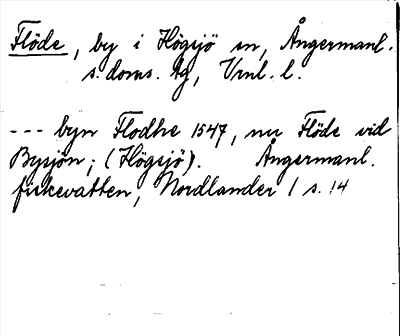 Flöde, by i Högsjö sn, Ångermanl.
s. doms. tg, Vrnl. l.
--- byn Flodhe 1547, nu Flöde vid
Bysjön; (Högsjö). Ångermanl.
fiskevatten, Nordlander 1 s. 14